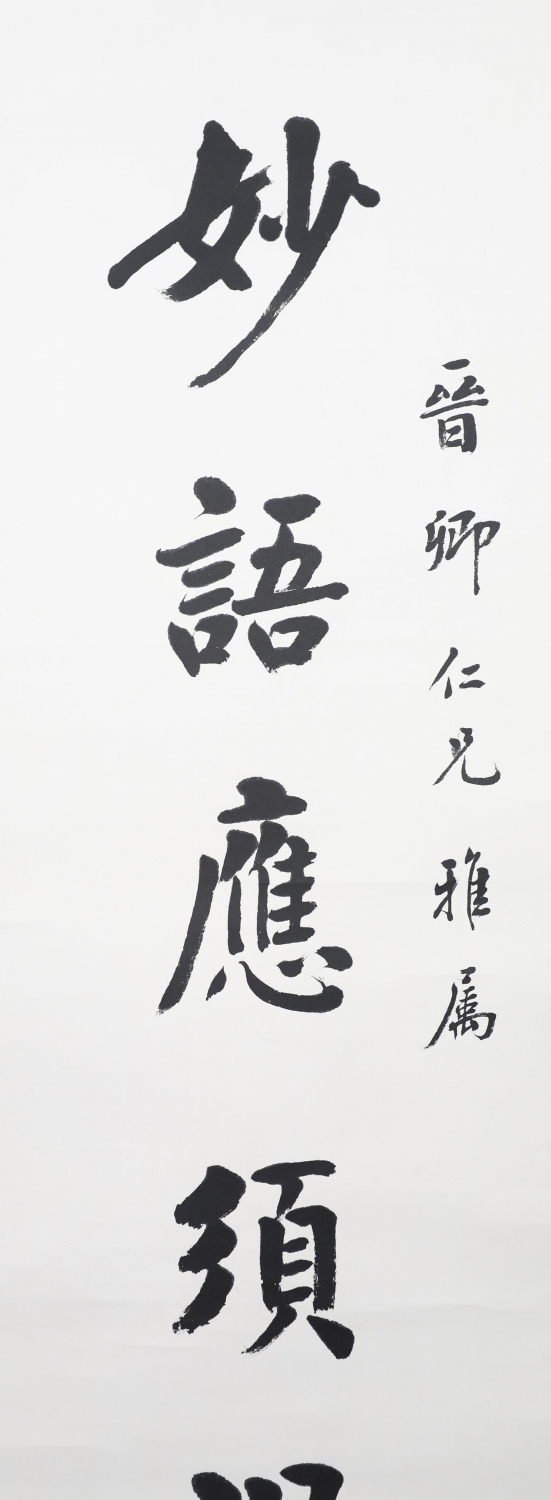 晉卿仁兄雅属
妙語應須